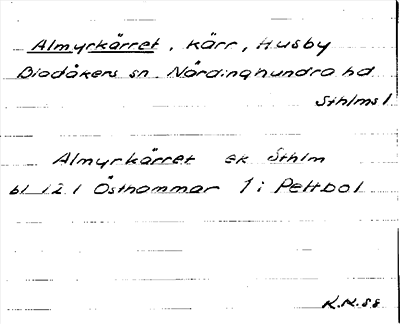 Almyrkärret, kärr, Husby
Bladåkers sn. Närdinghundra hd
Sthlms l
Almyrkärret ek Sthlm
bl 121 Östhammar 1 i Pettbol
K.N.58